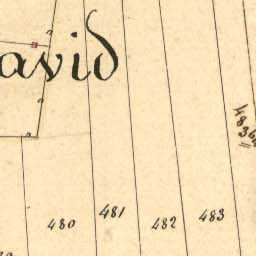 avid
480
481
482
483